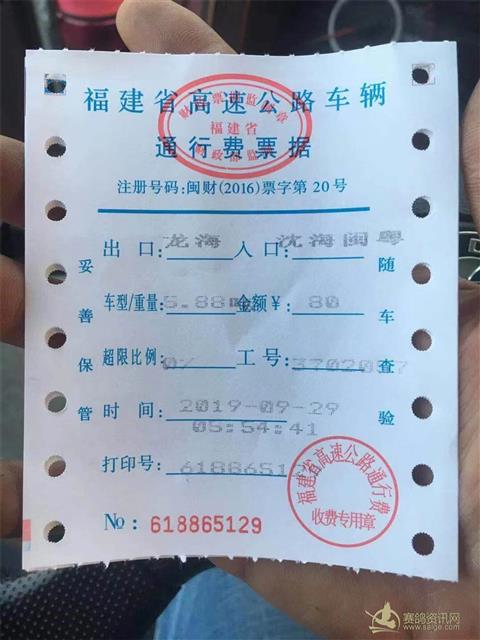 福建省高速公路车辆
通行费票据
福建省
注册号码:闽财(2016)票字第20号
出口: 龙海 入口: 沈海闽粤
车型/重量: 5.88吨 金额¥: 80
超限比例: 0% 工号:
时间: 2019-09-29
05:54:41
打印号:
No: 618865129
妥善保管
随车查验
福建省高速公路通行费
收费专用章
赛鸽资讯网
www.saige.com